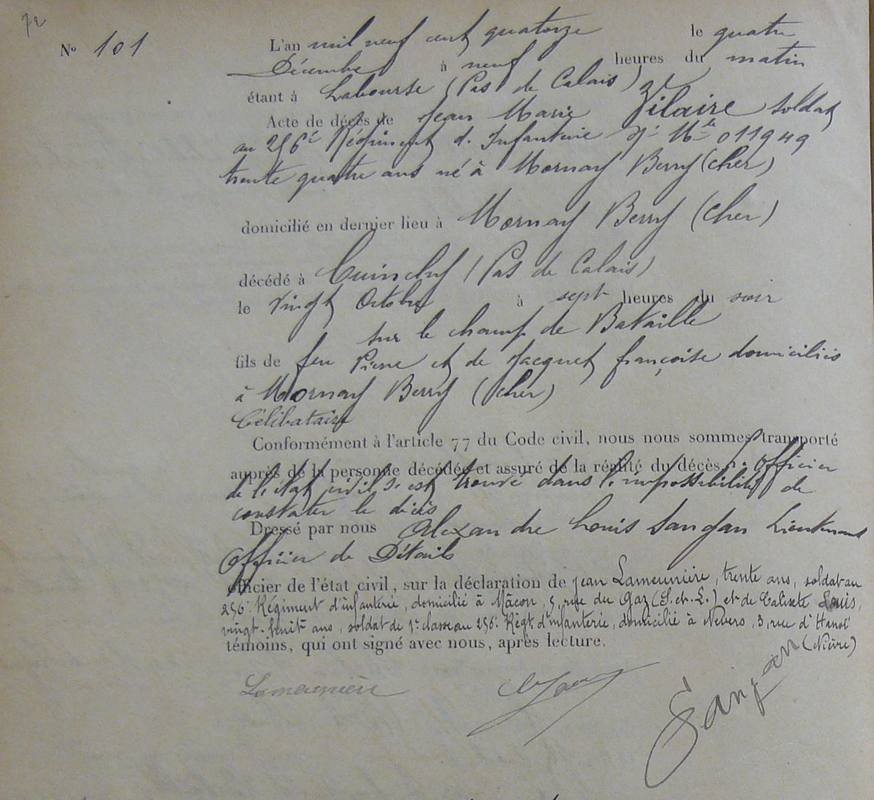 72
No 101
L'an mil neuf cent quatorze le quatre
Décembre à neuf heures du matin
étant à Labourse (Pas de Calais)
Acte de décès de Jean Marie Vilaire soldat
au 256e Régiment d'Infanterie No Mle 011949
trente quatre ans né à Mornay Berry (Cher)
domicilié en dernier lieu à Mornay Berry (Cher)
décédé à Cuinchy (Pas de Calais)
le vingt Octobre à sept heures du soir
sur le champ de Bataille
fils de feu Pierre et de Jacquet françoise domiciliés
à Mornay Berry (Cher)
Célibataire
Conformément à l'article 77 du Code civil, nous nous sommes transporté
auprès de la personne décédée et assuré de la réalité du décès. L'officier
de l'état civil s'est trouvé dans l'impossibilité de
constater le décès
Dressé par nous Alexandre Louis Sanjan Lieutenant
Officier de Détails
officier de l'état civil, sur la déclaration de Jean Lameunière, trente ans, soldat au
256e Régiment d'infanterie, domicilié à Mâcon, 5, rue du Gaz (S.-et-L.) et de Calixte Louis,
vingt-huit ans, soldat de 1e classe au 256e Régt d'infanterie, domicilié à Nevers, 3, rue d'Hanoï
témoins, qui ont signé avec nous, après lecture. (Nièvre)
Lameunière
Sanjan